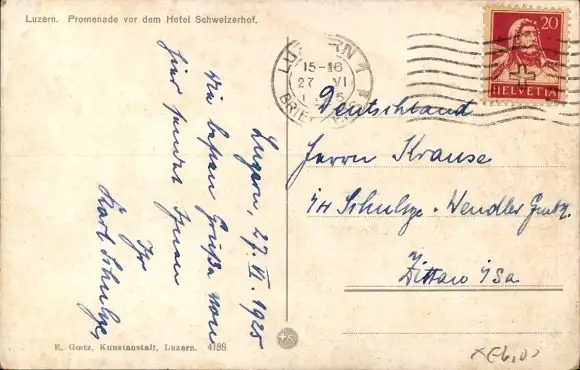 Luzern. Promenade vor dem Hotel Schweizerhof.
20
HELVETIA
LUZERN 1
15-16
27 VI
BRIEF
Deutschland
Herrn Krause
i/H Schulze-Wendler
Zittau i/Sa.
Luzern, 27. VI. 1925
Die besten Grüße von
hier sendet Ihnen
Ihr
Karl Schulze
E. Goetz, Kunstanstalt, Luzern. 4188